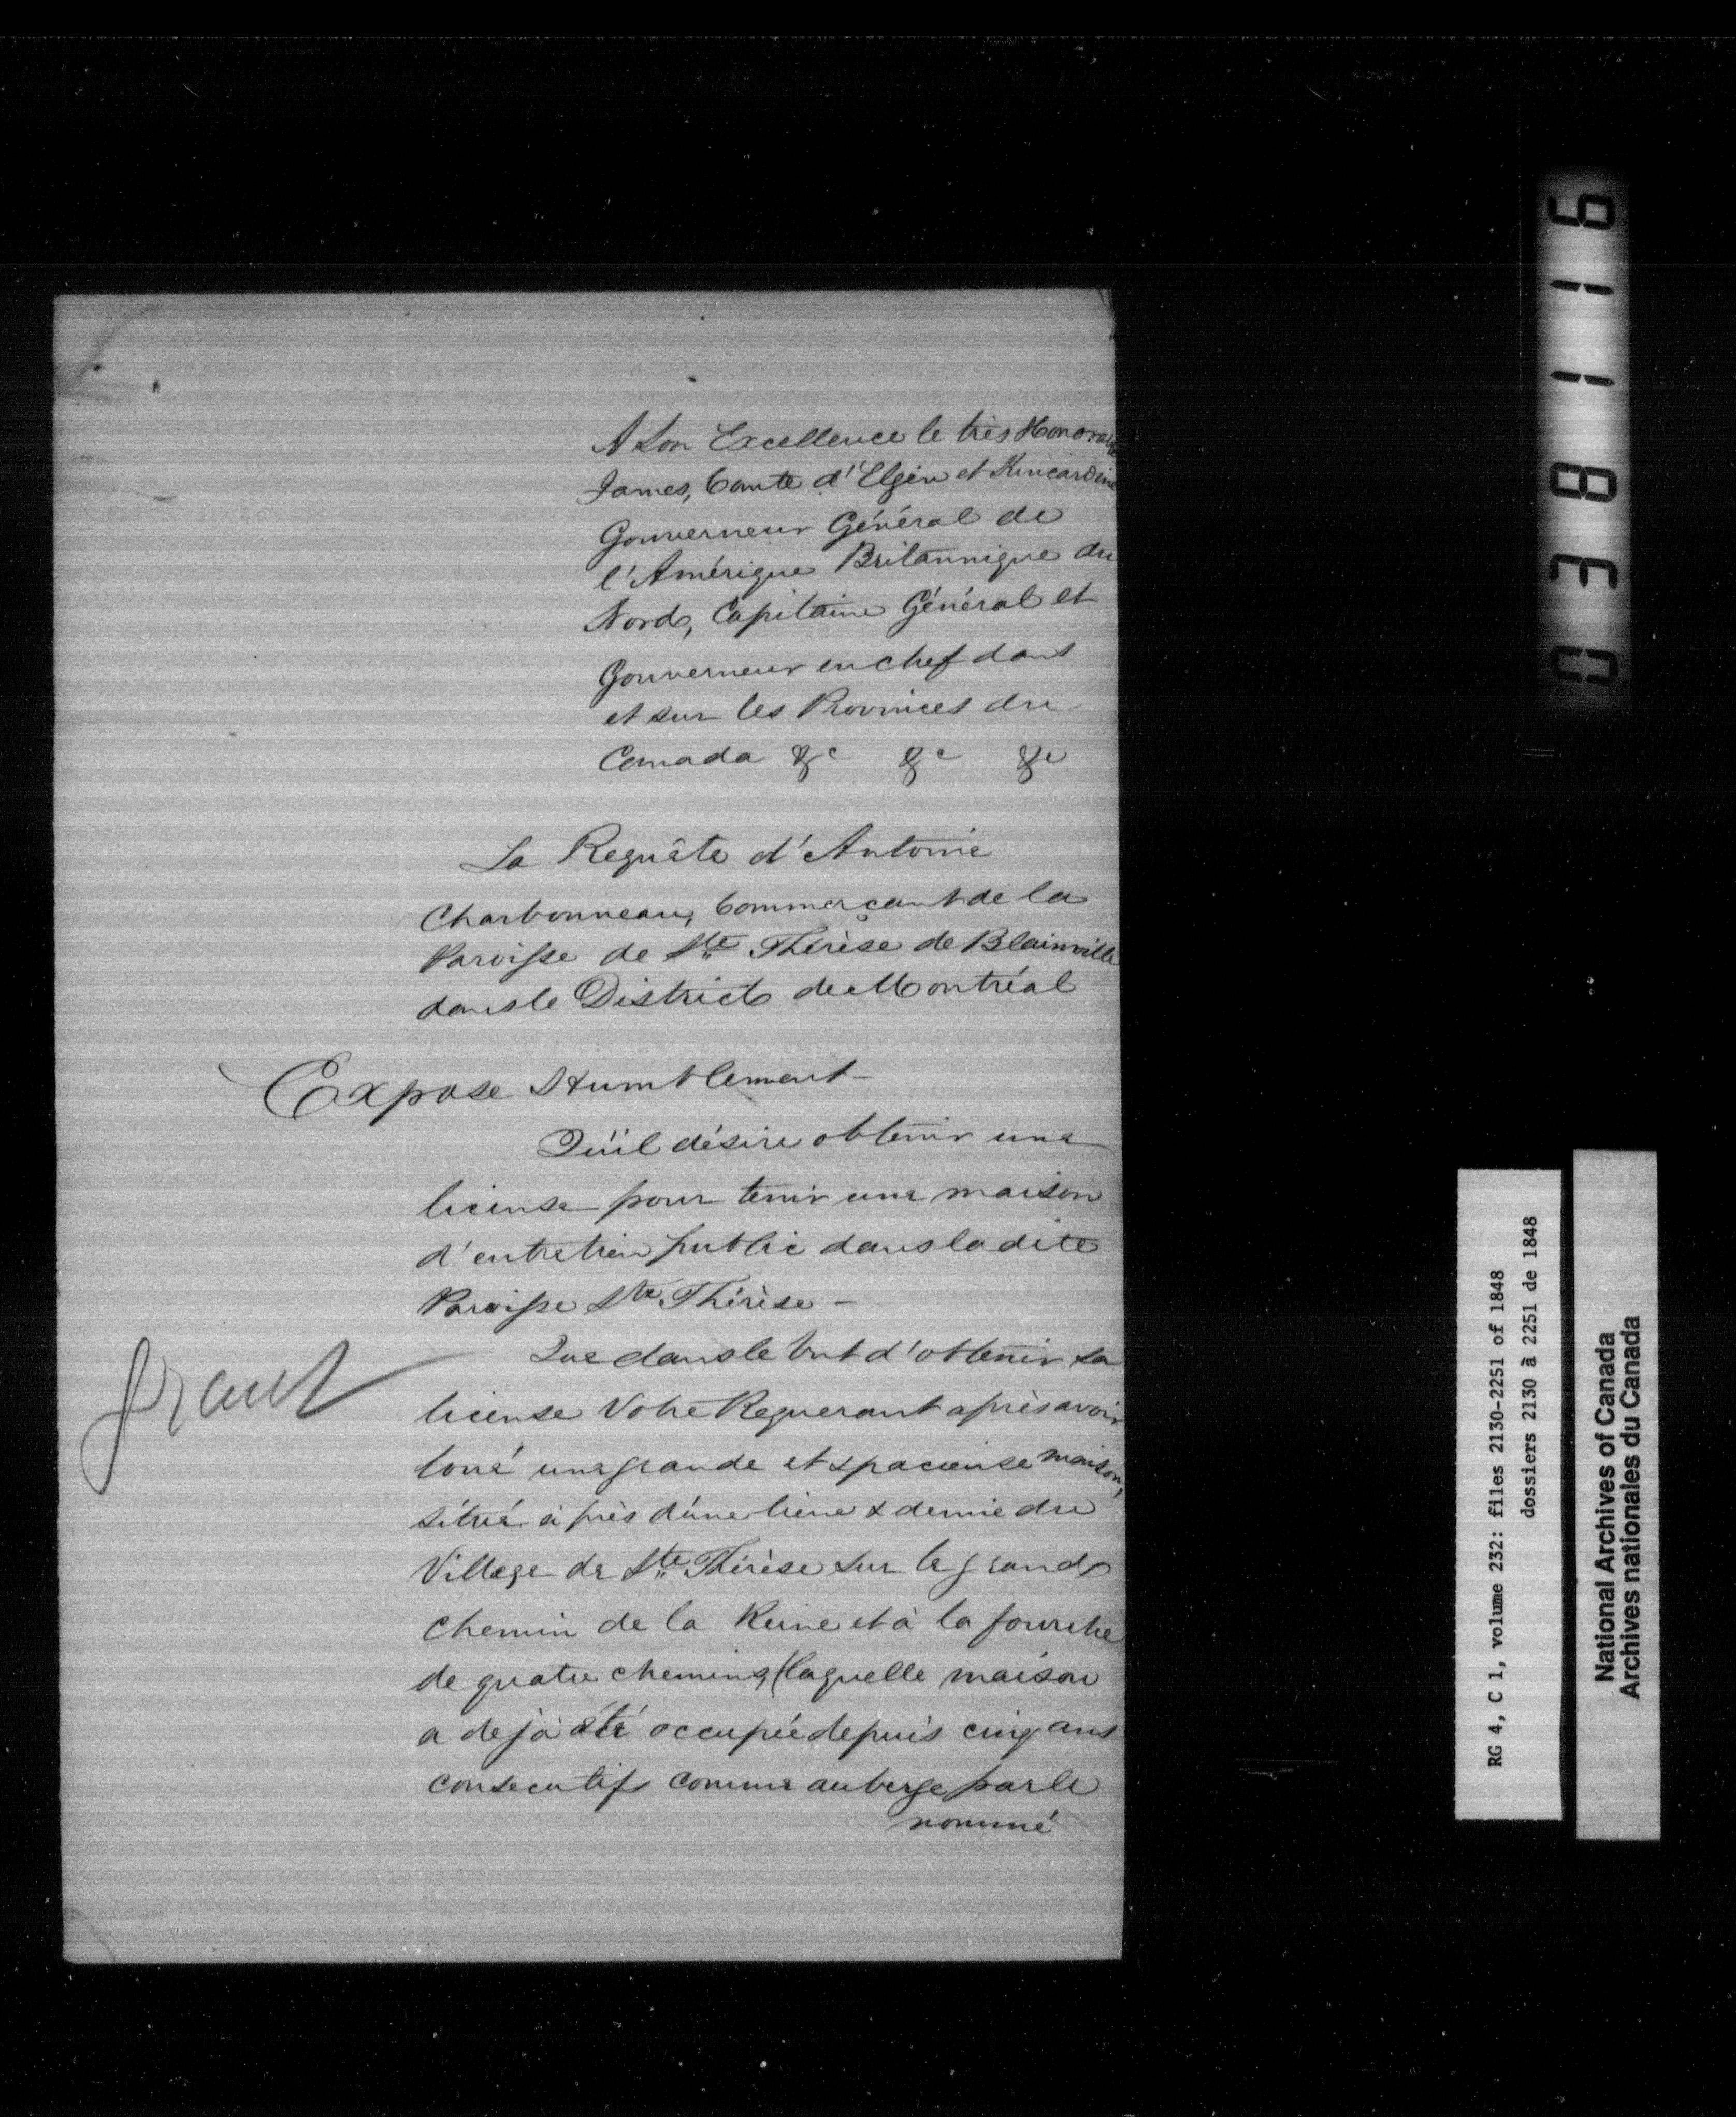 A Son Excellence le très Honorable
James, Comte d'Elgin et Kincardine
Gouverneur Général de
l'Amérique Britannique du
Nord, Capitaine Général et
Gouverneur en chef dans
et sur les Provinces du
Canada &c &c &c
La Requête d'Antoine
Charbonneau, Commerçant de la
Paroisse de Ste Thérèse de Blainville
dans le District de Montréal
Expose Humblement
Qu'il désire obtenir une
license pour tenir une maison
d'entretien public dans la dite
Paroisse Ste Thérèse –
Que dans le but d'obtenir sa
license Votre Requerant après avoir
loué une grande et spacieuse maison,
située à près d'une lieue & demie du
Village de Ste Thérèse sur le grand
chemin de la Reine et à la fourche
de quatre chemins (laquelle maison
a dejà été occupée depuis cinq ans
consecutifs comme auberge par le
nommé
Grant
038116
RG 4, C 1, volume 232: files 2130-2251 of 1848
dossiers 2130 à 2251 de 1848
National Archives of Canada
Archives nationales du Canada